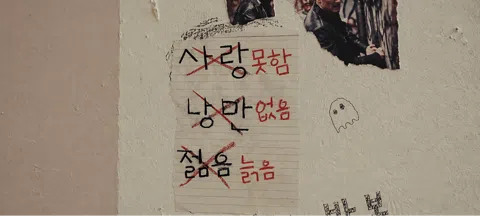 사랑 못함
낭만 없음
젊음 늙음
바보